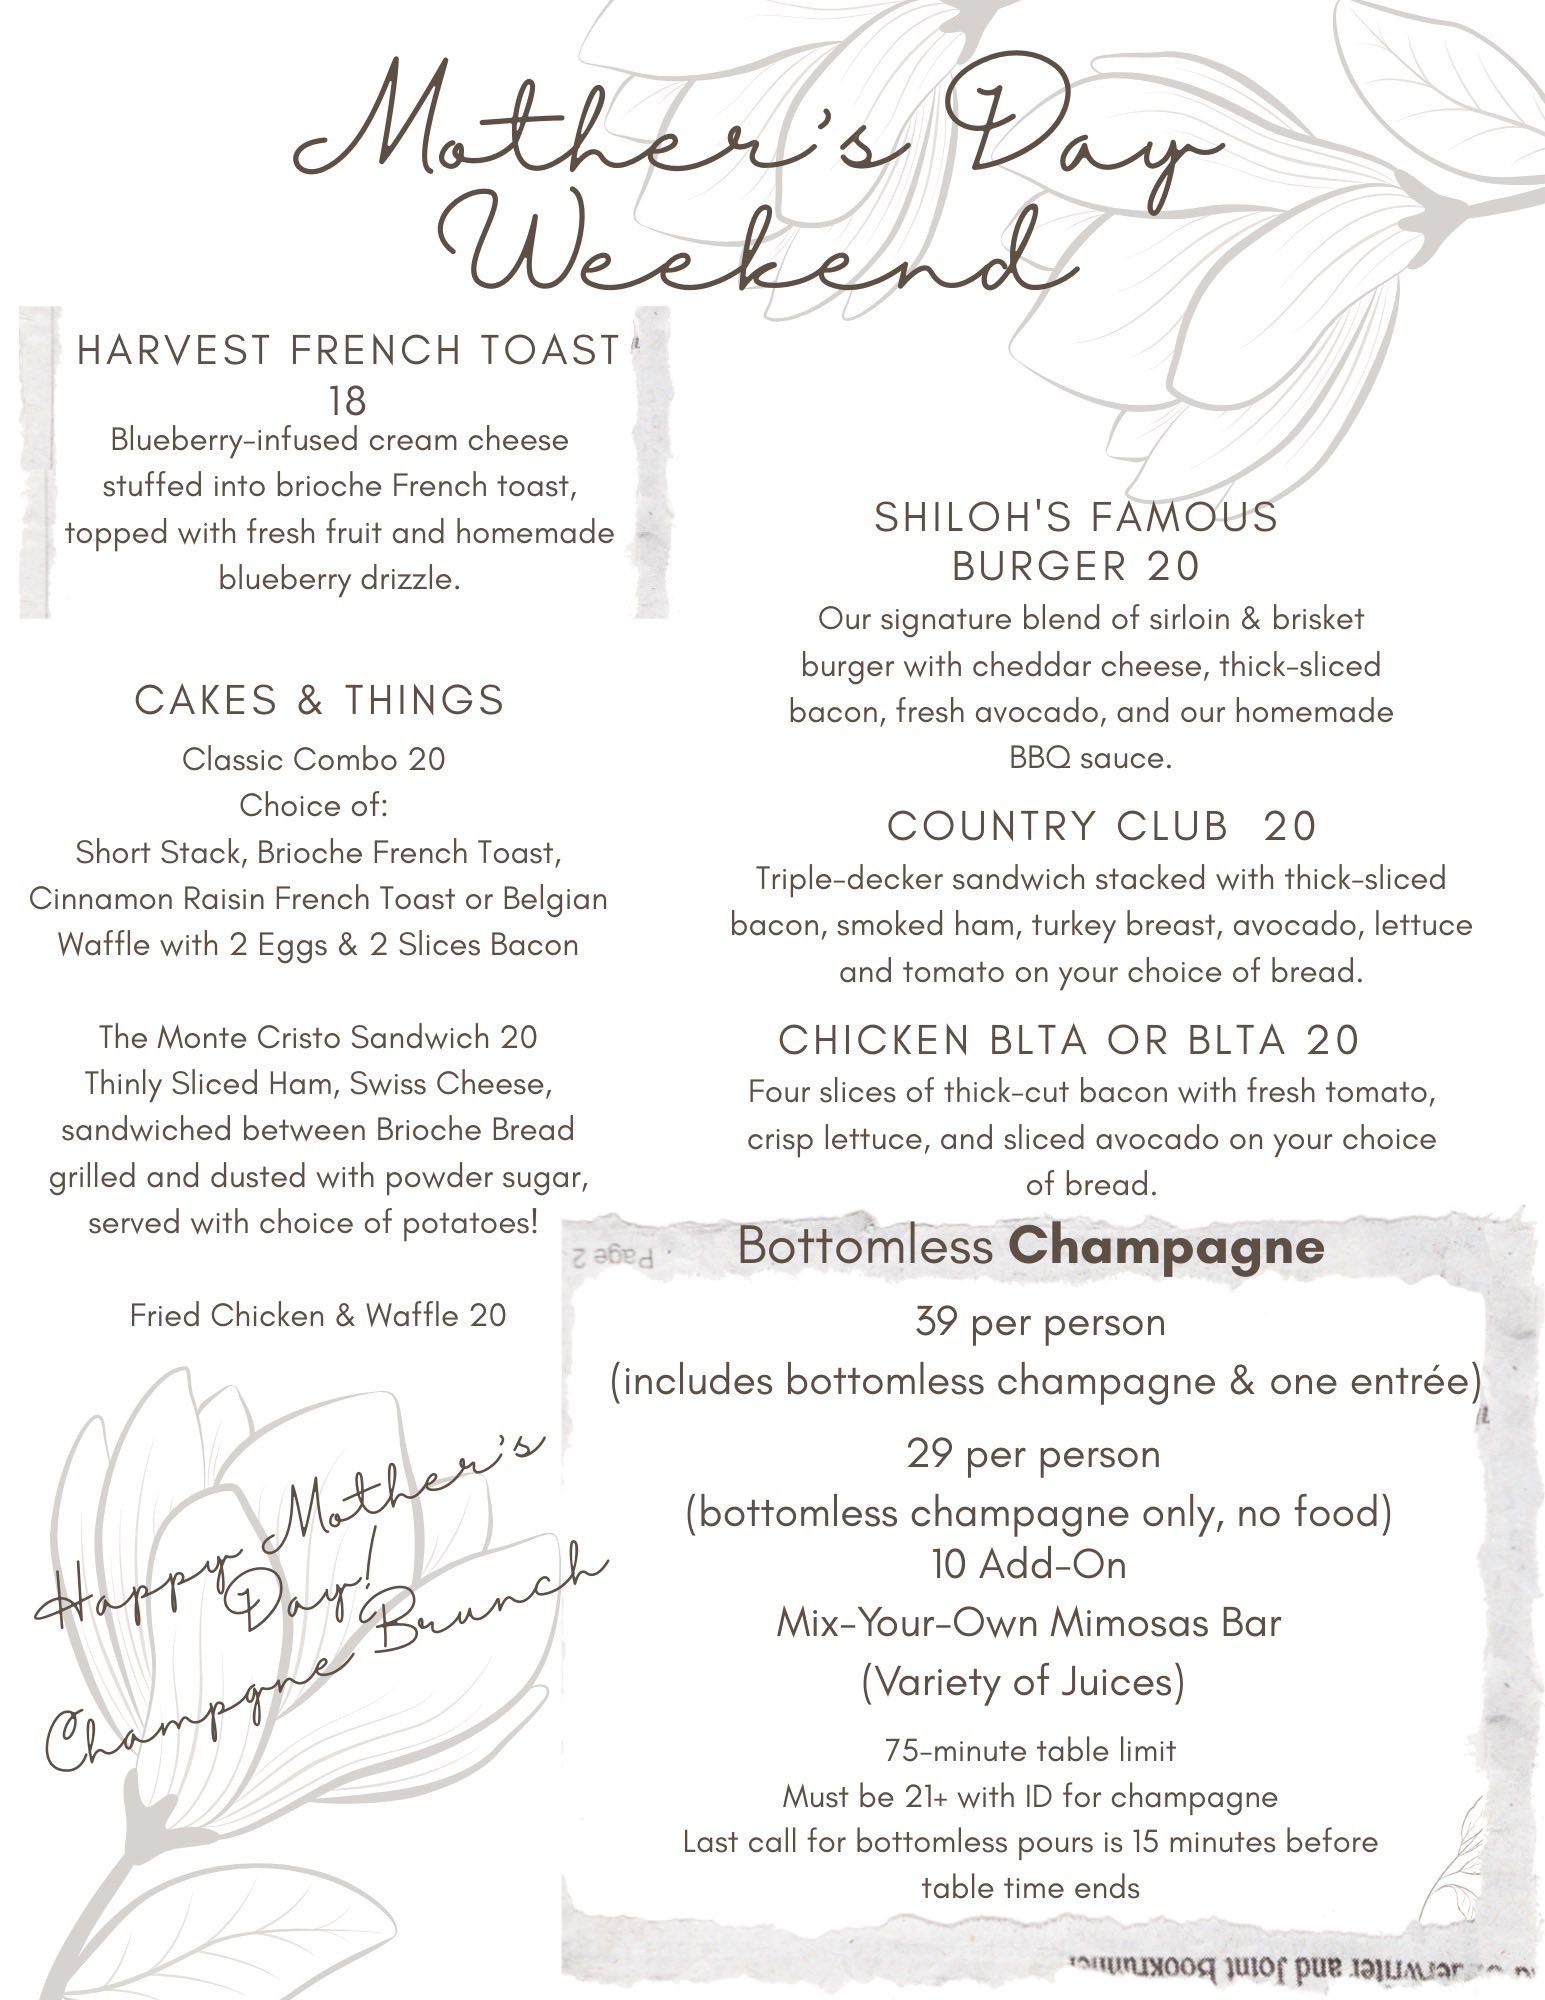 Mother's Day
Weekend
HARVEST FRENCH TOAST
18
Blueberry-infused cream cheese
stuffed into brioche French toast,
topped with fresh fruit and homemade
blueberry drizzle.
CAKES & THINGS
Classic Combo 20
Choice of:
Short Stack, Brioche French Toast,
Cinnamon Raisin French Toast or Belgian
Waffle with 2 Eggs & 2 Slices Bacon
The Monte Cristo Sandwich 20
Thinly Sliced Ham, Swiss Cheese,
sandwiched between Brioche Bread
grilled and dusted with powder sugar,
served with choice of potatoes!
Fried Chicken & Waffle 20
Happy Mother's
Day!
Champgne Brunch
SHILOH'S FAMOUS
BURGER 20
Our signature blend of sirloin & brisket
burger with cheddar cheese, thick-sliced
bacon, fresh avocado, and our homemade
BBQ sauce.
COUNTRY CLUB 20
Triple-decker sandwich stacked with thick-sliced
bacon, smoked ham, turkey breast, avocado, lettuce
and tomato on your choice of bread.
CHICKEN BLTA OR BLTA 20
Four slices of thick-cut bacon with fresh tomato,
crisp lettuce, and sliced avocado on your choice
of bread.
Page 2
Bottomless Champagne
39 per person
(includes bottomless champagne & one entrée)
29 per person
(bottomless champagne only, no food)
10 Add-On
Mix-Your-Own Mimosas Bar
(Variety of Juices)
75-minute table limit
Must be 21+ with ID for champagne
Last call for bottomless pours is 15 minutes before
table time ends
and Joint